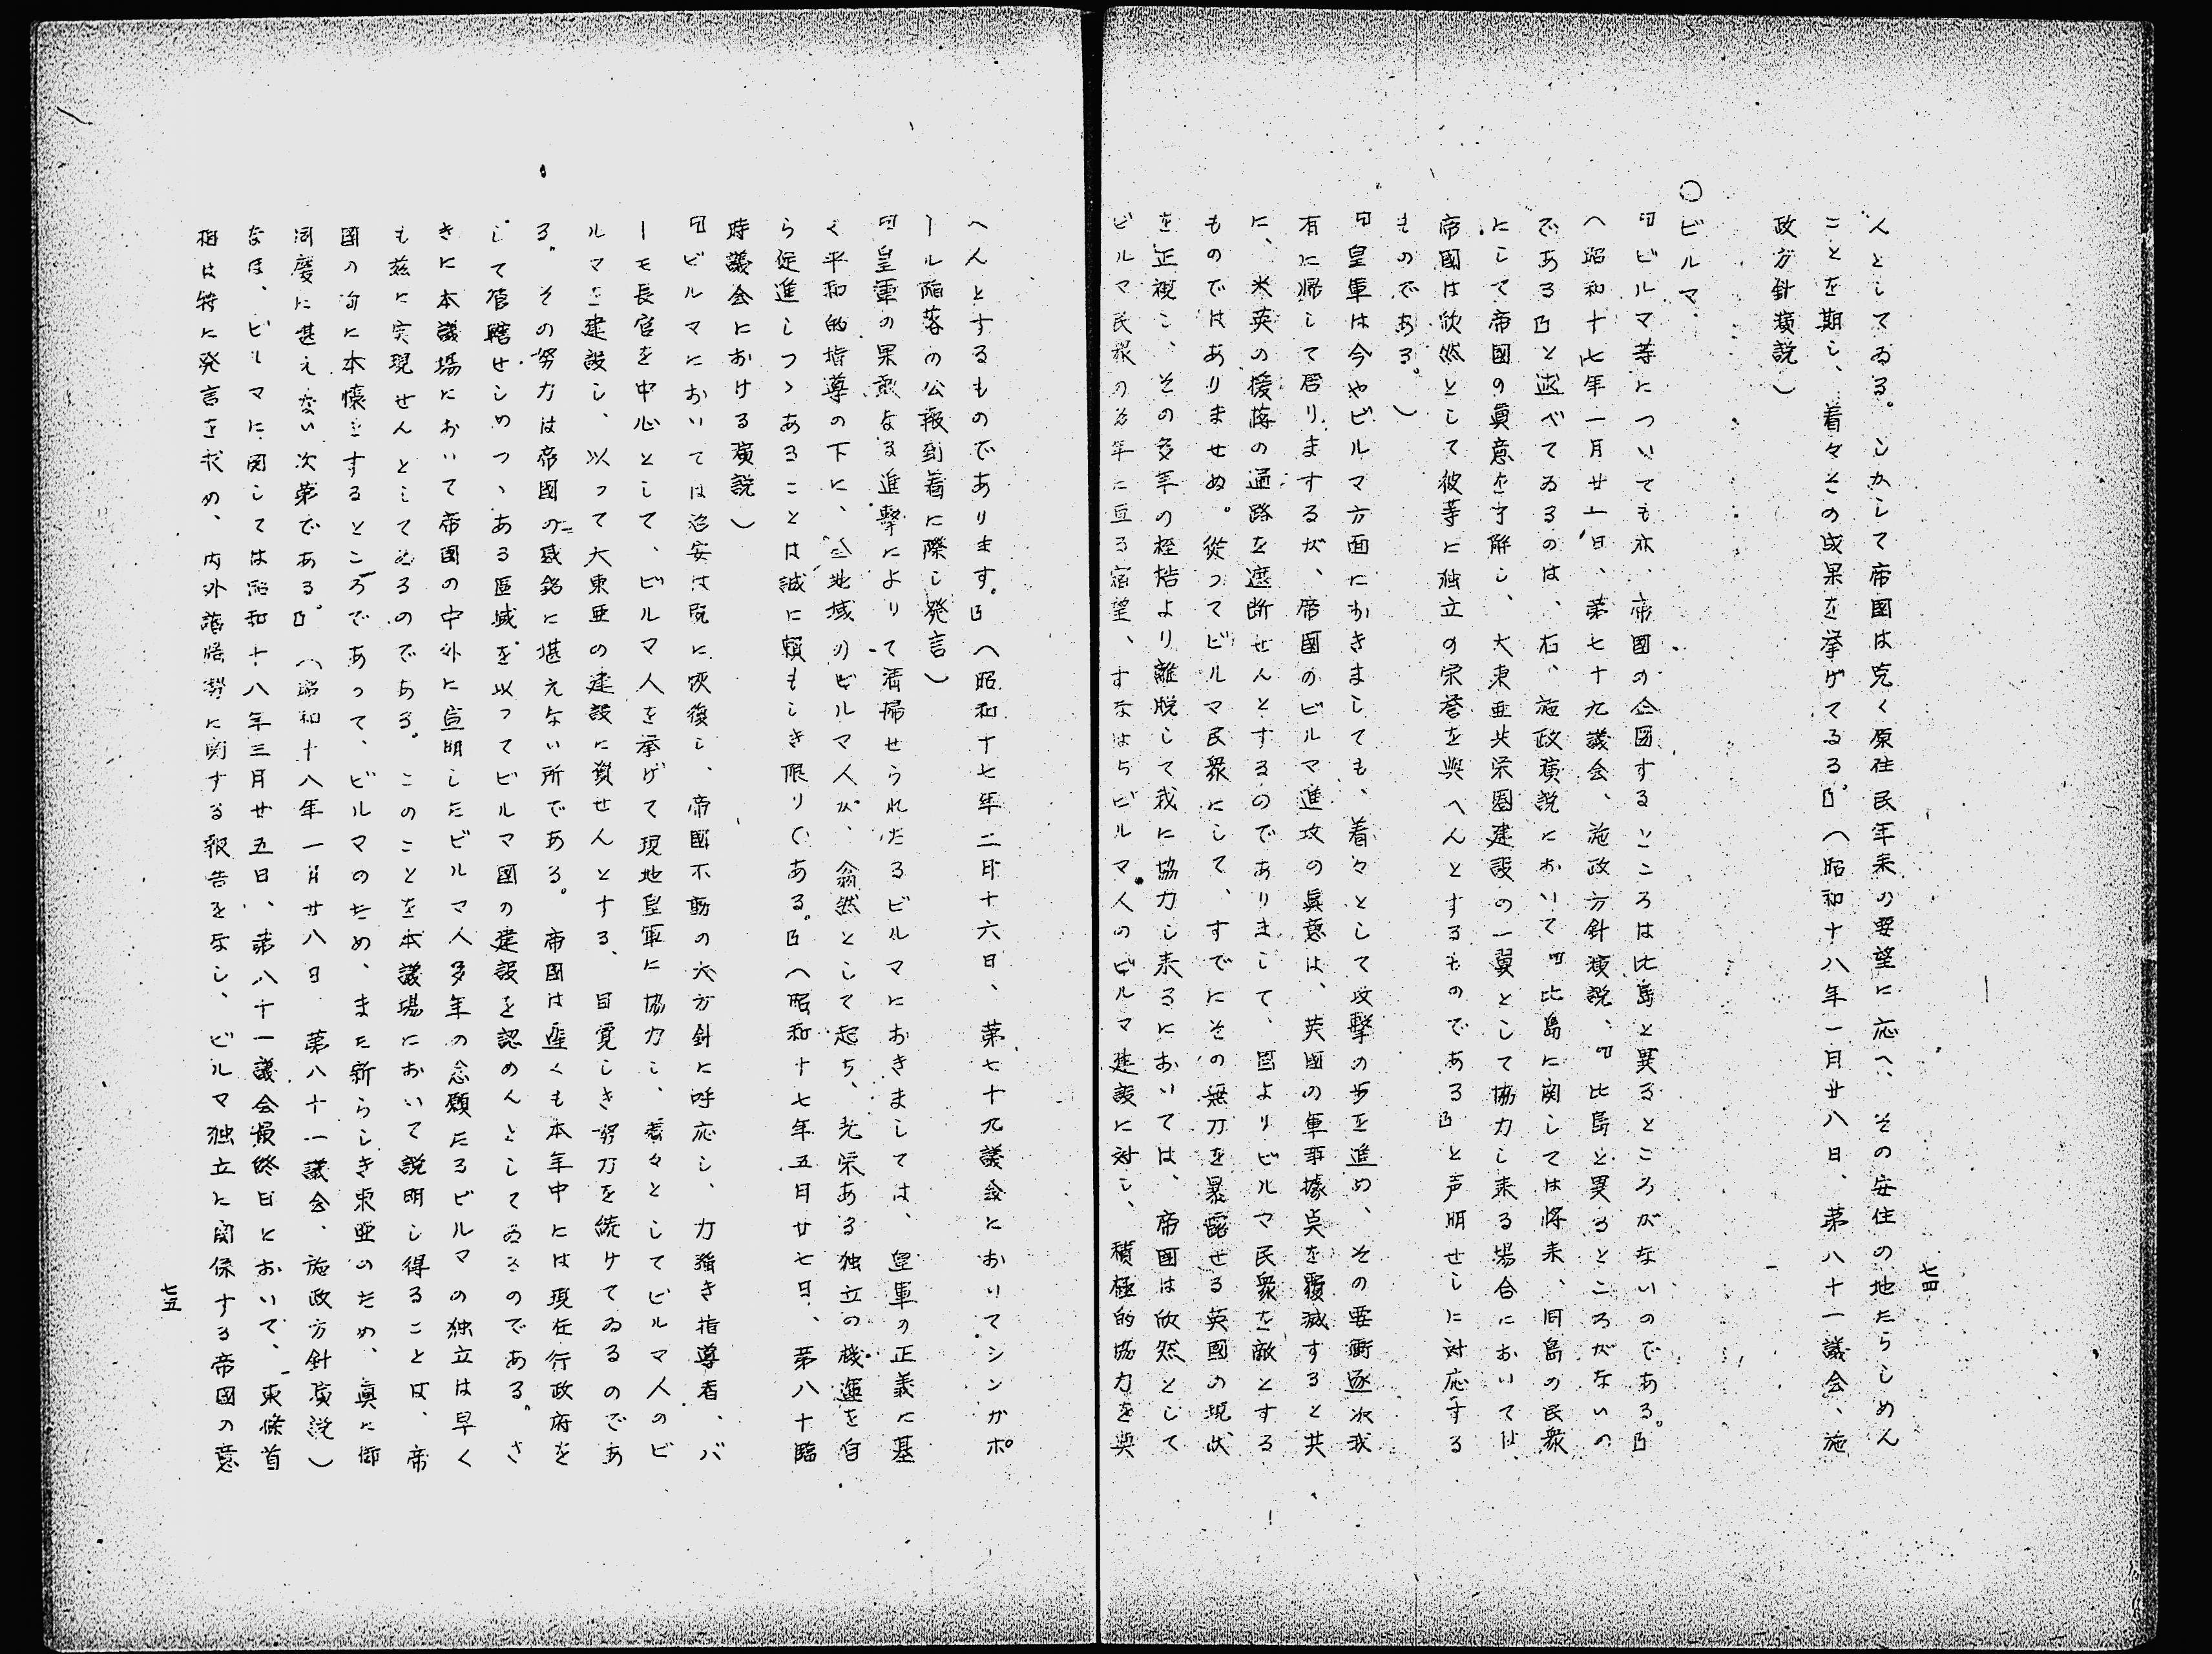 七四
人としてゐる。しかして帝国は克く原住民年来の要望に応へ、その安住の地たらしめん
ことを期し、着々その成果を挙げてゐる』。(昭和十八年一月廿八日、第八十一議会、施
政方針演説)
○ビルマ
『ビルマ等についても亦、帝國の企図するところは比島と異るところがないのである。』
(昭和十七年一月廿一日、第七十九議会、施政方針演説、『比島と異るところがないの
である』と述べてゐるのは、右、施政演説において『比島に関しては将来、同島の民衆
にして帝國の眞意を了解し、大東亜共栄圏建設の一翼として協力し来る場合においては
帝國は欣然として彼等に独立の栄誉を與へんとするものである』と声明せしに対応する
ものである。)
『皇軍は今やビルマ方面におきましても、着々として攻撃の歩を進め、その要衝逐次我
有に帰して居りまするが、帝國のビルマ進攻の眞意は、英國の軍事據点を覆滅すると共
に、米英の援蒋の通路を遮断せんとするのでありまして、固よりビルマ民衆を敵とする
ものではありませぬ。従ってビルマ民衆にして、すでにその無力を暴露せる英國の現状
を正視し、その多年の桎梏より離脱して我に協力し来るにおいては、帝國は欣然として
ビルマ民衆の多年に亘る宿望、すなはちビルマ人のビルマ建設に対し、積極的協力を與
へんとするものであります。』(昭和十七年二月十六日、第七十九議会においてシンガポ
ール陥落の公報到着に際し発言)
『皇軍の果敢なる進撃によりて清掃せられたるビルマにおきましては、皇軍の正義に基
く平和的指導の下に、全地域のビルマ人が、翕然として起ち、光栄ある独立の機運を自
ら促進しつゝあることは誠に頼もしき限りである。』(昭和十七年五月廿七日、第八十臨
時議会における演説)
『ビルマにおいては治安は既に恢復し、帝國不動の大方針に呼応し、力强き指導者、バ
ーモ長官を中心として、ビルマ人を挙げて現地皇軍に協力し、着々としてビルマ人のビ
ルマを建設し、以って大東亜の建設に資せんとする、目覚しき努力を続けてゐるのであ
る。その努力は帝國の感銘に堪えない所である。帝國は遅くも本年中には現任行政府を
して管轄せしめつゝある區域を以ってビルマ國の建設を認めんとしてゐるのである。さ
きに本議場において帝国の中外に宣明したビルマ人多年の念願たるビルマの独立は早く
も茲に実現せんとしてゐるのである。このことを本議場において説明し得ることは、帝
國の洵に本懐とするところであって、ビルマのため、また新らしき東亜のため、眞に御
同慶に甚えない次第である。』(昭和十八年一月廿八日 第八十一議会、施政方針演説)
なほ、ビルマに関しては昭和十八年三月廿五日、第八十一議会最終日において、東條首
相は特に発言を求め、内外諸情勢に関する報告をなし、ビルマ独立に関係する帝國の意
七五